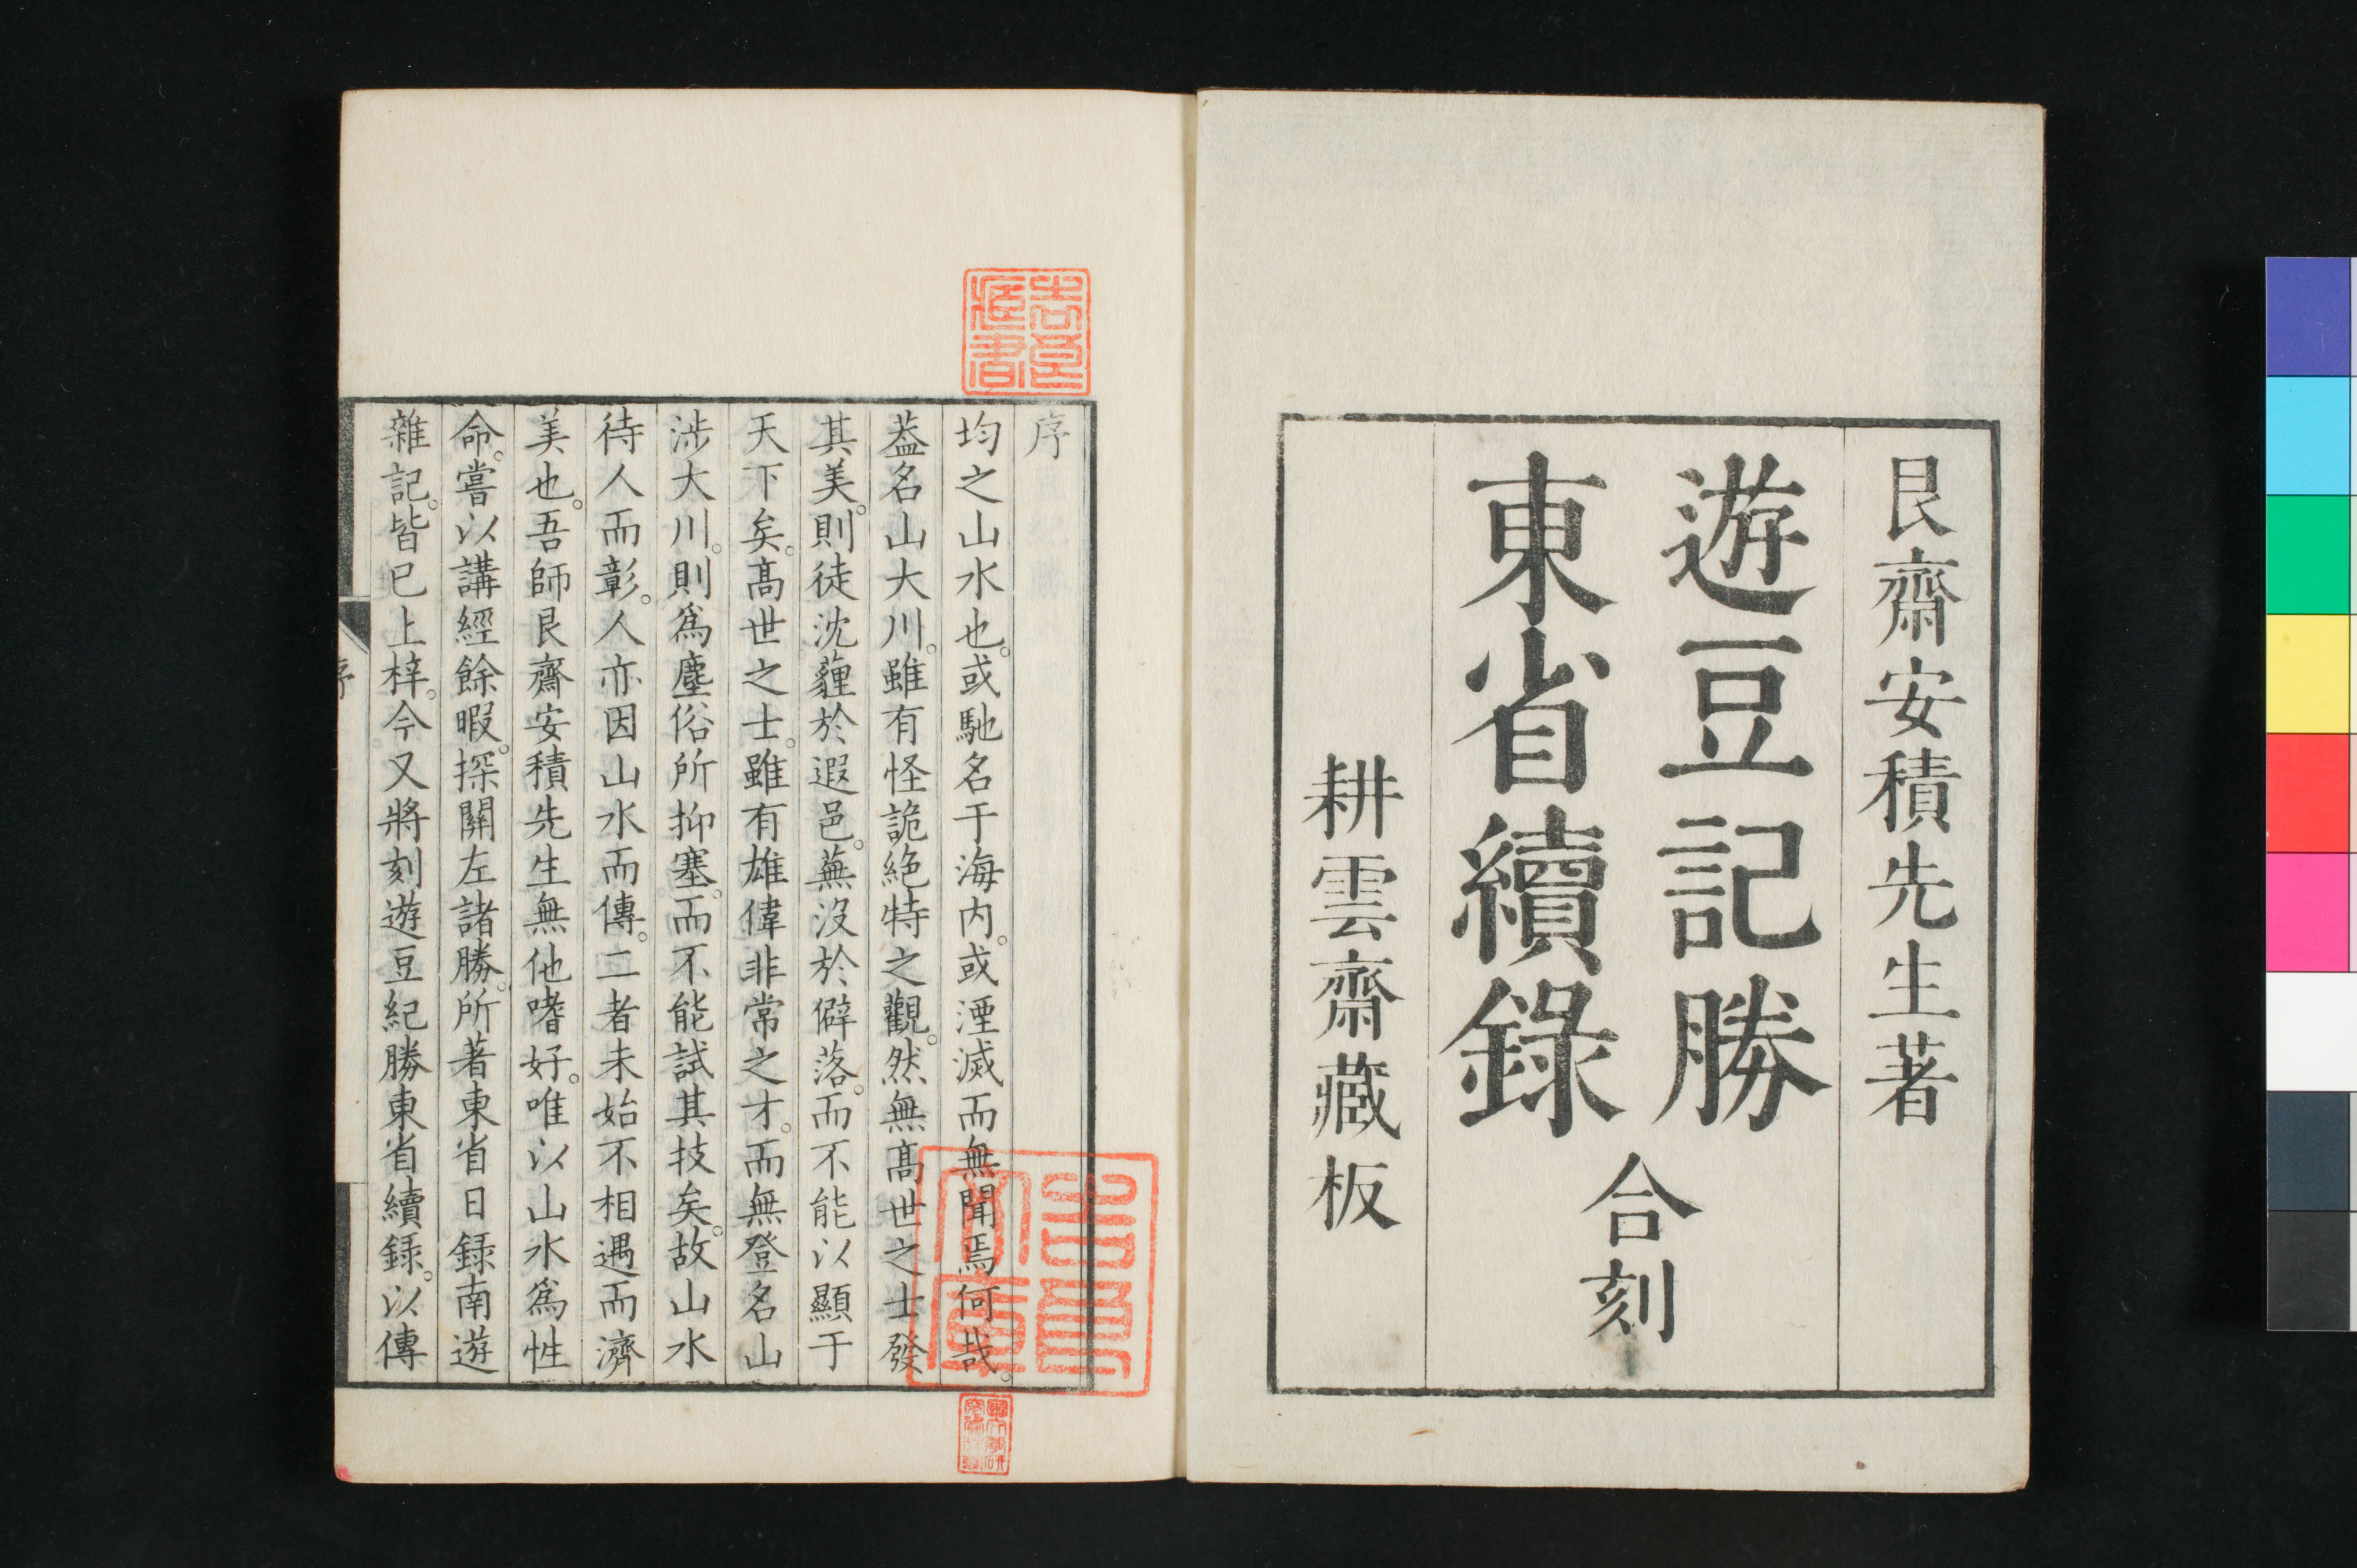 艮齋安積先生著
遊豆記勝
東省續錄
合刻
耕雲齋藏板
序
均之山水也。或馳名于海内。或湮滅而無聞焉何哉。
葢名山大川。雖有怪詭絶特之觀。然無髙世之士發
其美。則徒沈薶於遐邑。蕪沒於僻落。而不能以顯于
天下矣。髙世之士。雖有雄偉非常之才。而無登名山
涉大川。則爲塵俗所抑塞。而不能試其技矣。故山水
待人而彰。人亦因山水而傳。二者未始不相遇而濟
美也。吾師艮齋安積先生無他嗜好。唯以山水爲性
命。嘗以講經餘暇。探關左諸勝。所著東省日録南遊
雜記。皆已上梓。今又將刻遊豆紀勝東省續録。以傳
序